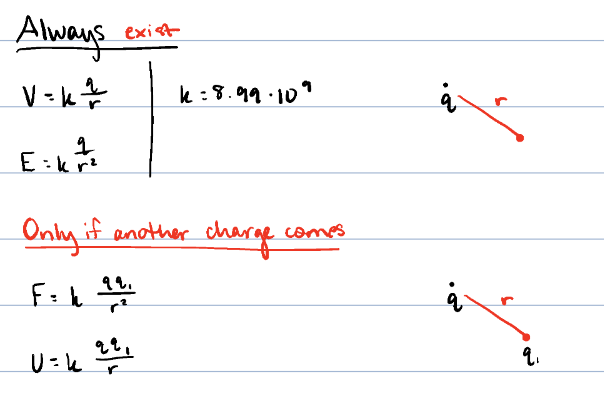 Always exist
V = k q/r
k = 8.99 · 10⁹
q r
E = k q/r²
Only if another charge comes
F = k qq₁/r²
q r
U = k qq₁/r
q₁